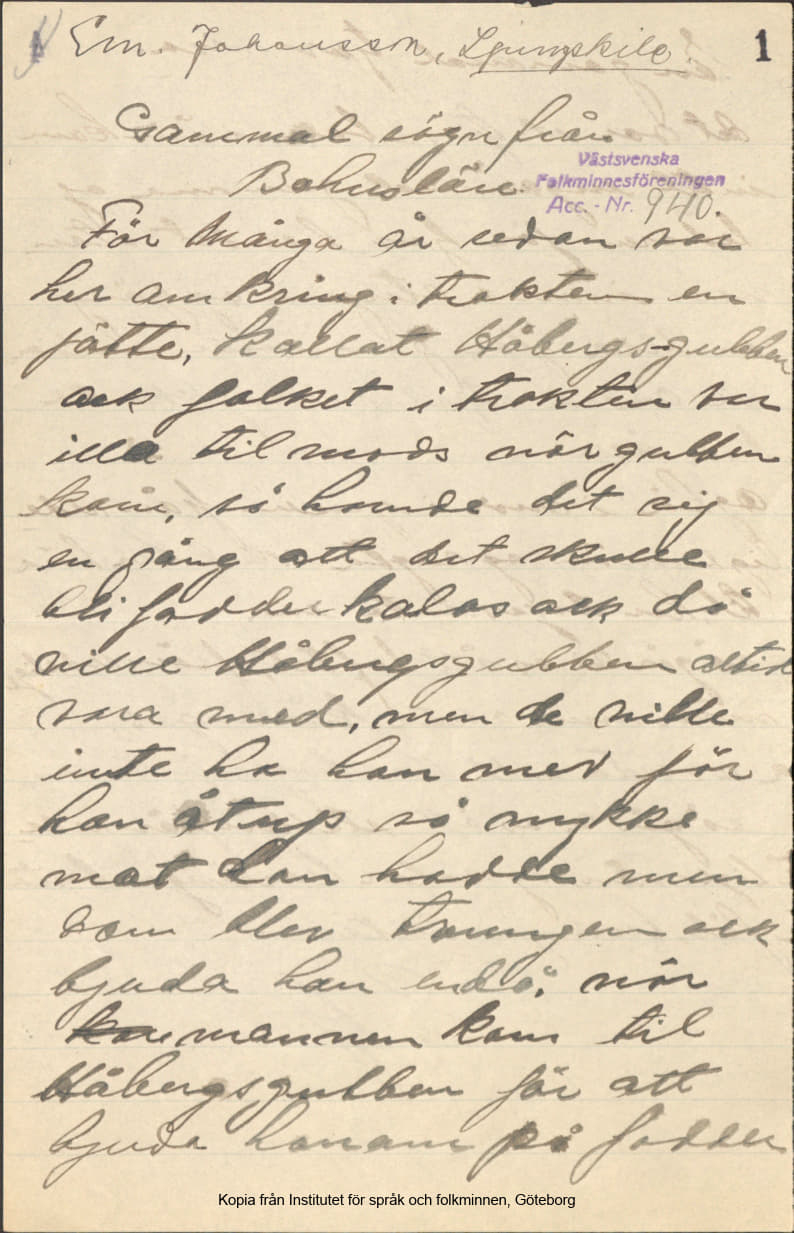 Em. Johansson, Ljungskile.
1
Gammal sögn från
Bohuslän.
Västsvenska
Folkminnesföreningen
Acc. - Nr. 940.
För Många år sedan var
her omkring i trakten en
jätte, kallat Håbergs-gubben
ock folket i trakten var
illa til mods när gubben
kom, så hende det sig
en gång att det skulle
bli fadder kalas ock då
ville Håbergsgubben altid
vara med, men de ville
inte ha han med för
han åt up så mykke
mat han hadde men
som blev tvungen ock
bjuda han endå. när
mannen kom til
Håbergsgubben för att
bjuda honom på fadder
Kopia från Institutet för språk och folkminnen, Göteborg